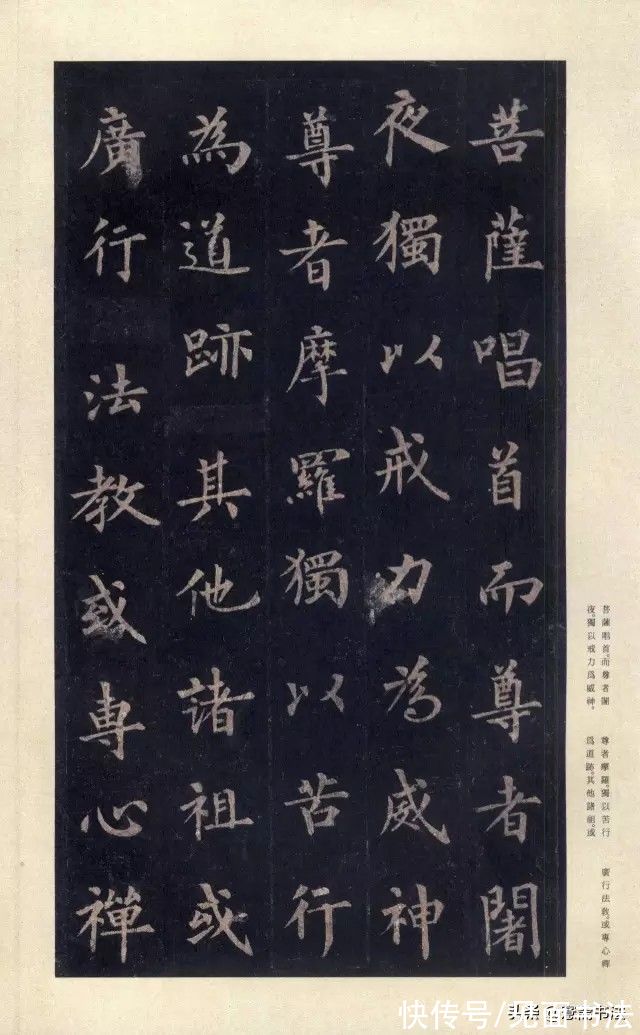 菩薩唱首而尊者闍
夜獨以戒力為威神
尊者摩羅獨以苦行
為道跡其他諸祖或
廣行法教或專心禪
菩薩唱首。而尊者闍
夜。獨以戒力爲威神。
尊者摩羅。獨以苦行
爲道跡。其他諸祖。或
廣行法敎。或專心禪
快传号/见面书法